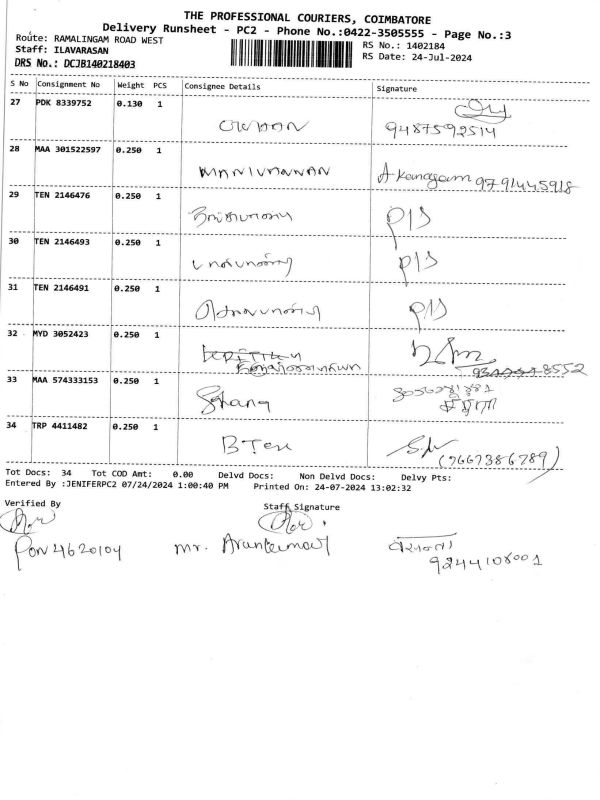 THE PROFESSIONAL COURIERS, COIMBATORE
Delivery Runsheet - PC2 - Phone No.:0422-3505555 - Page No.:3
Route: RAMALINGAM ROAD WEST
RS No.: 1402184
Staff: ILAVARASAN
RS Date: 24-Jul-2024
DRS No.: DCJB140218403
S No Consignment No Weight PCS Consignee Details Signature
27 PDK 8339752 0.130 1
9487592514
28 MAA 301522597 0.250 1
MANIVANNAN A Kanagam 9791445918
29 TEN 2146476 0.250 1
P/S
30 TEN 2146493 0.250 1
P/S
31 TEN 2146491 0.250 1
P/S
32 MYD 3052423 0.250 1
8552
33 MAA 574333153 0.250 1
34 TRP 4411482 0.250 1
B Tex (9667386789)
Tot Docs: 34 Tot COD Amt: 0.00 Delvd Docs: Non Delvd Docs: Delvy Pts:
Entered By :JENIFERPC2 07/24/2024 1:00:40 PM Printed On: 24-07-2024 13:02:32
Verified By Staff Signature
PON 4620104 Mr. Arunkumar
9244108001